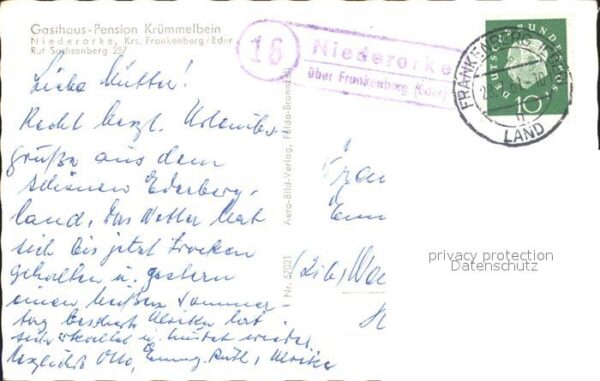 Gasthaus-Pension Krümmelbein
Niederorke, Krs. Frankenberg/Eder
Ruf Sachsenberg 257
16
Niederorke
über Frankenberg (Eder)
FRANKENBERG
LAND
DEUTSCHE BUNDESPOST
10
Liebe Mutter!
Recht herzl. Urlaubs-
grüße aus dem
schönen Ederberg-
land, das Wetter hat
sich bis jetzt trocken
gehalten u. gestern
einen heißen Sommer-
tag beschert. Ulrike hat
sich u. hustet wieder.
herzlichst Otto, Emmy, Ruth, Ulrike
Aero-Bild-Verlag, Fulda-Bronnzell
Nr. 57021
Frau
privacy protection
Datenschutz